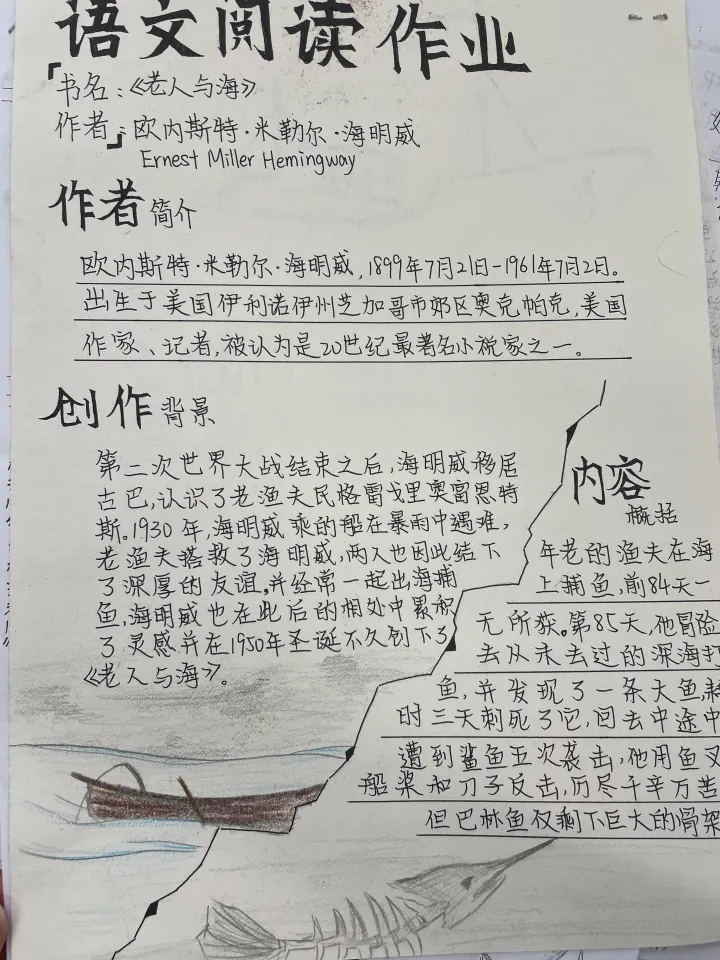 语文阅读作业
书名：《老人与海》
作者：欧内斯特·米勒尔·海明威
Ernest Miller Hemingway
作者简介
欧内斯特·米勒尔·海明威，1899年7月21日-1961年7月2日。
出生于美国伊利诺伊州芝加哥市郊区奥克帕克，美国
作家、记者，被认为是20世纪最著名小说家之一。
创作背景
第二次世界大战结束之后，海明威移居
古巴，认识了老渔夫民格雷戈里奥富恩特
斯。1930年，海明威乘的船在暴雨中遇难，
老渔夫搭救了海明威，两人也因此结下
了深厚的友谊。并经常一起出海捕
鱼，海明威也在此后的相处中累积
了灵感并在1950年圣诞不久创下了
《老人与海》。
内容概括
年老的渔夫在海
上捕鱼，前84天一
无所获。第85天，他冒险
去从未去过的深海打
鱼，并发现了一条大鱼，耗
时三天刺死了它，回去中途中
遭到鲨鱼五次袭击，他用鱼叉
船桨和刀子反击，历尽千辛万苦
但巴林鱼仅剩下巨大的骨架